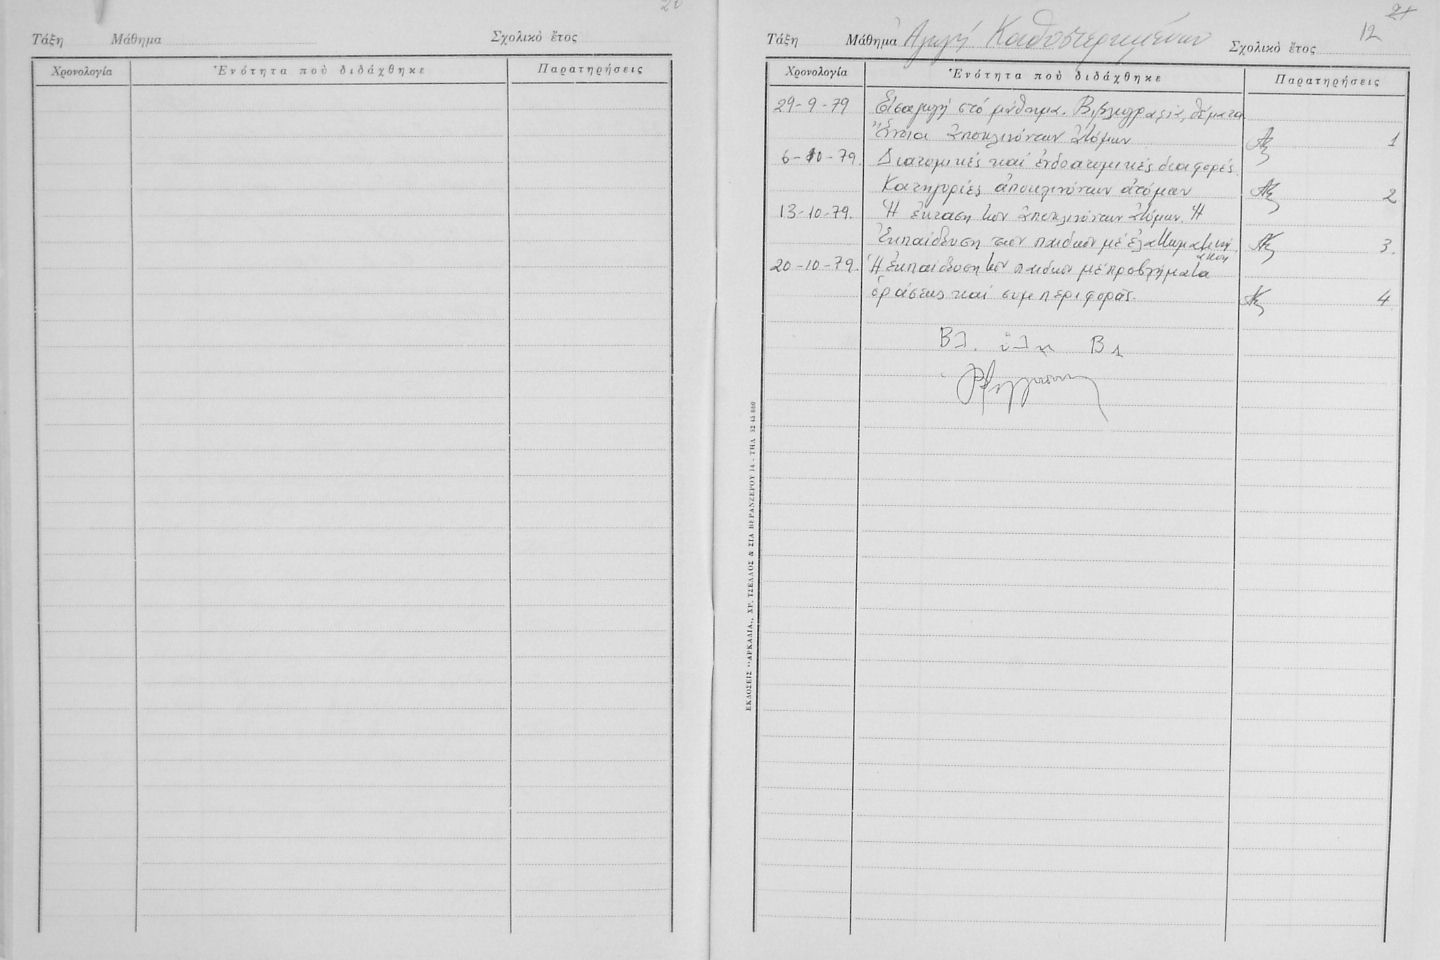 20
Τάξη Μάθημα Σχολικὸ ἔτος
Χρονολογία Ἑνότητα ποὺ διδάχθηκε Παρατηρήσεις
21
12
Τάξη Μάθημα Ἀγωγή Καθυστερημένων Σχολικὸ ἔτος
Χρονολογία Ἑνότητα ποὺ διδάχθηκε Παρατηρήσεις
29-9-79 Εἰσαγωγή στό μάθημα. Βιβλιογραφία, θέματα
Ἔννοια ἀποκλινόντων ἀτόμων 1
6-10-79. Διατομικές καί ἐνδοατομικές διαφορές.
Κατηγορίες ἀποκλινόντων ἀτόμων 2
13-10-79. Ἡ ἔκταση τῶν ἀποκλινόντων ἀτόμων. Ἡ
ἐκπαίδευση τῶν παιδιῶν μέ ἐλαττωματική ἀκοή 3.
20-10-79. Ἡ ἐκπαίδευση τῶν παιδιῶν μέ προβλήματα
ὁράσεως καί συμπεριφορᾶς. 4
Βλ. ὕλη Βλ
ΕΚΔΟΣΕΙΣ "ΑΡΚΑΔΙΑ", ΧΡ. ΤΣΕΛΛΟΣ & ΣΙΑ ΒΕΡΑΝΖΕΡΟΥ 14 - ΤΗΛ.